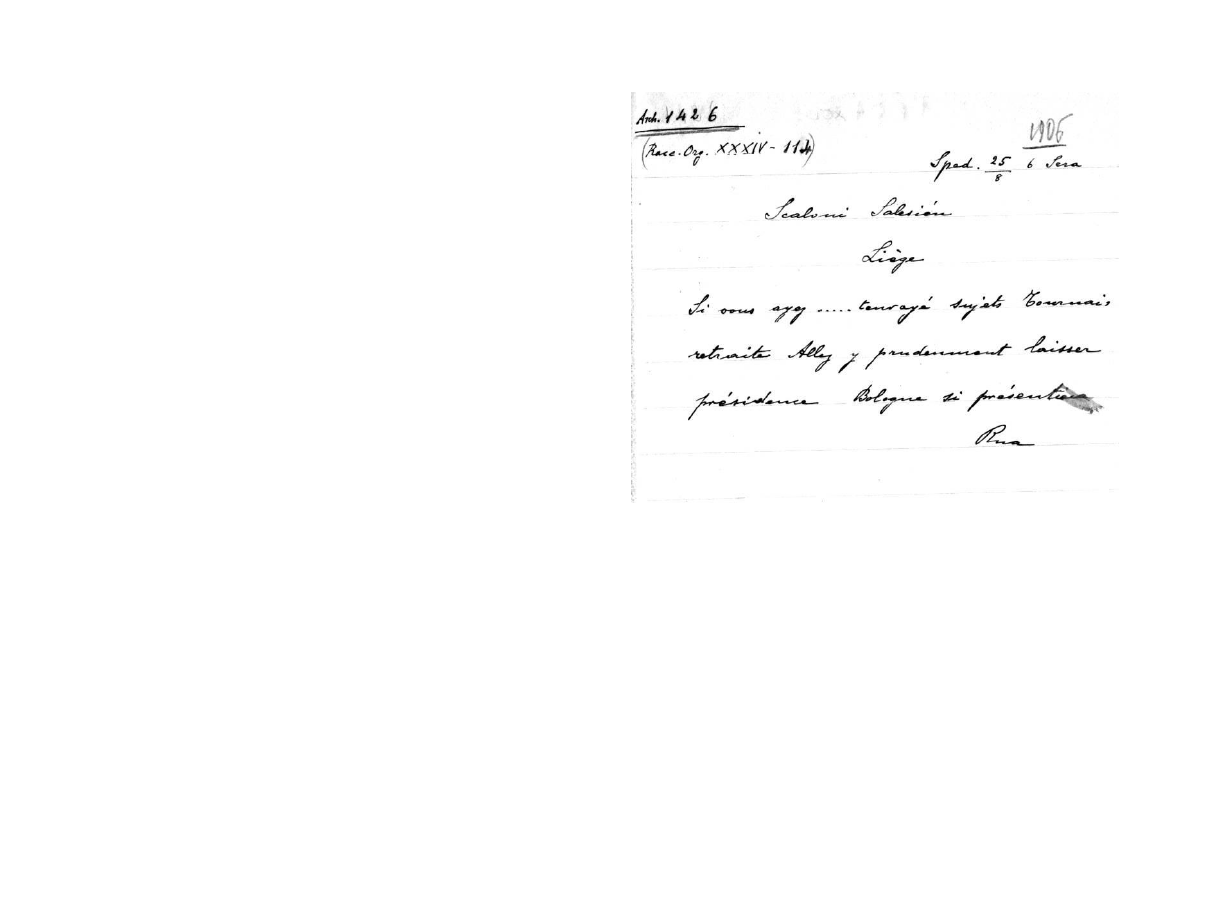 Arch. 1426
1906
(Racc. Org. XXXIV - 114)
Sped. 25/8 6 Sera
Scaloni Salésien
Liège
Si vous ayez ..... tenvoyé sujets Tournais
retraite Allez y prudemment laisser
présidence Bologne si présent
Rua